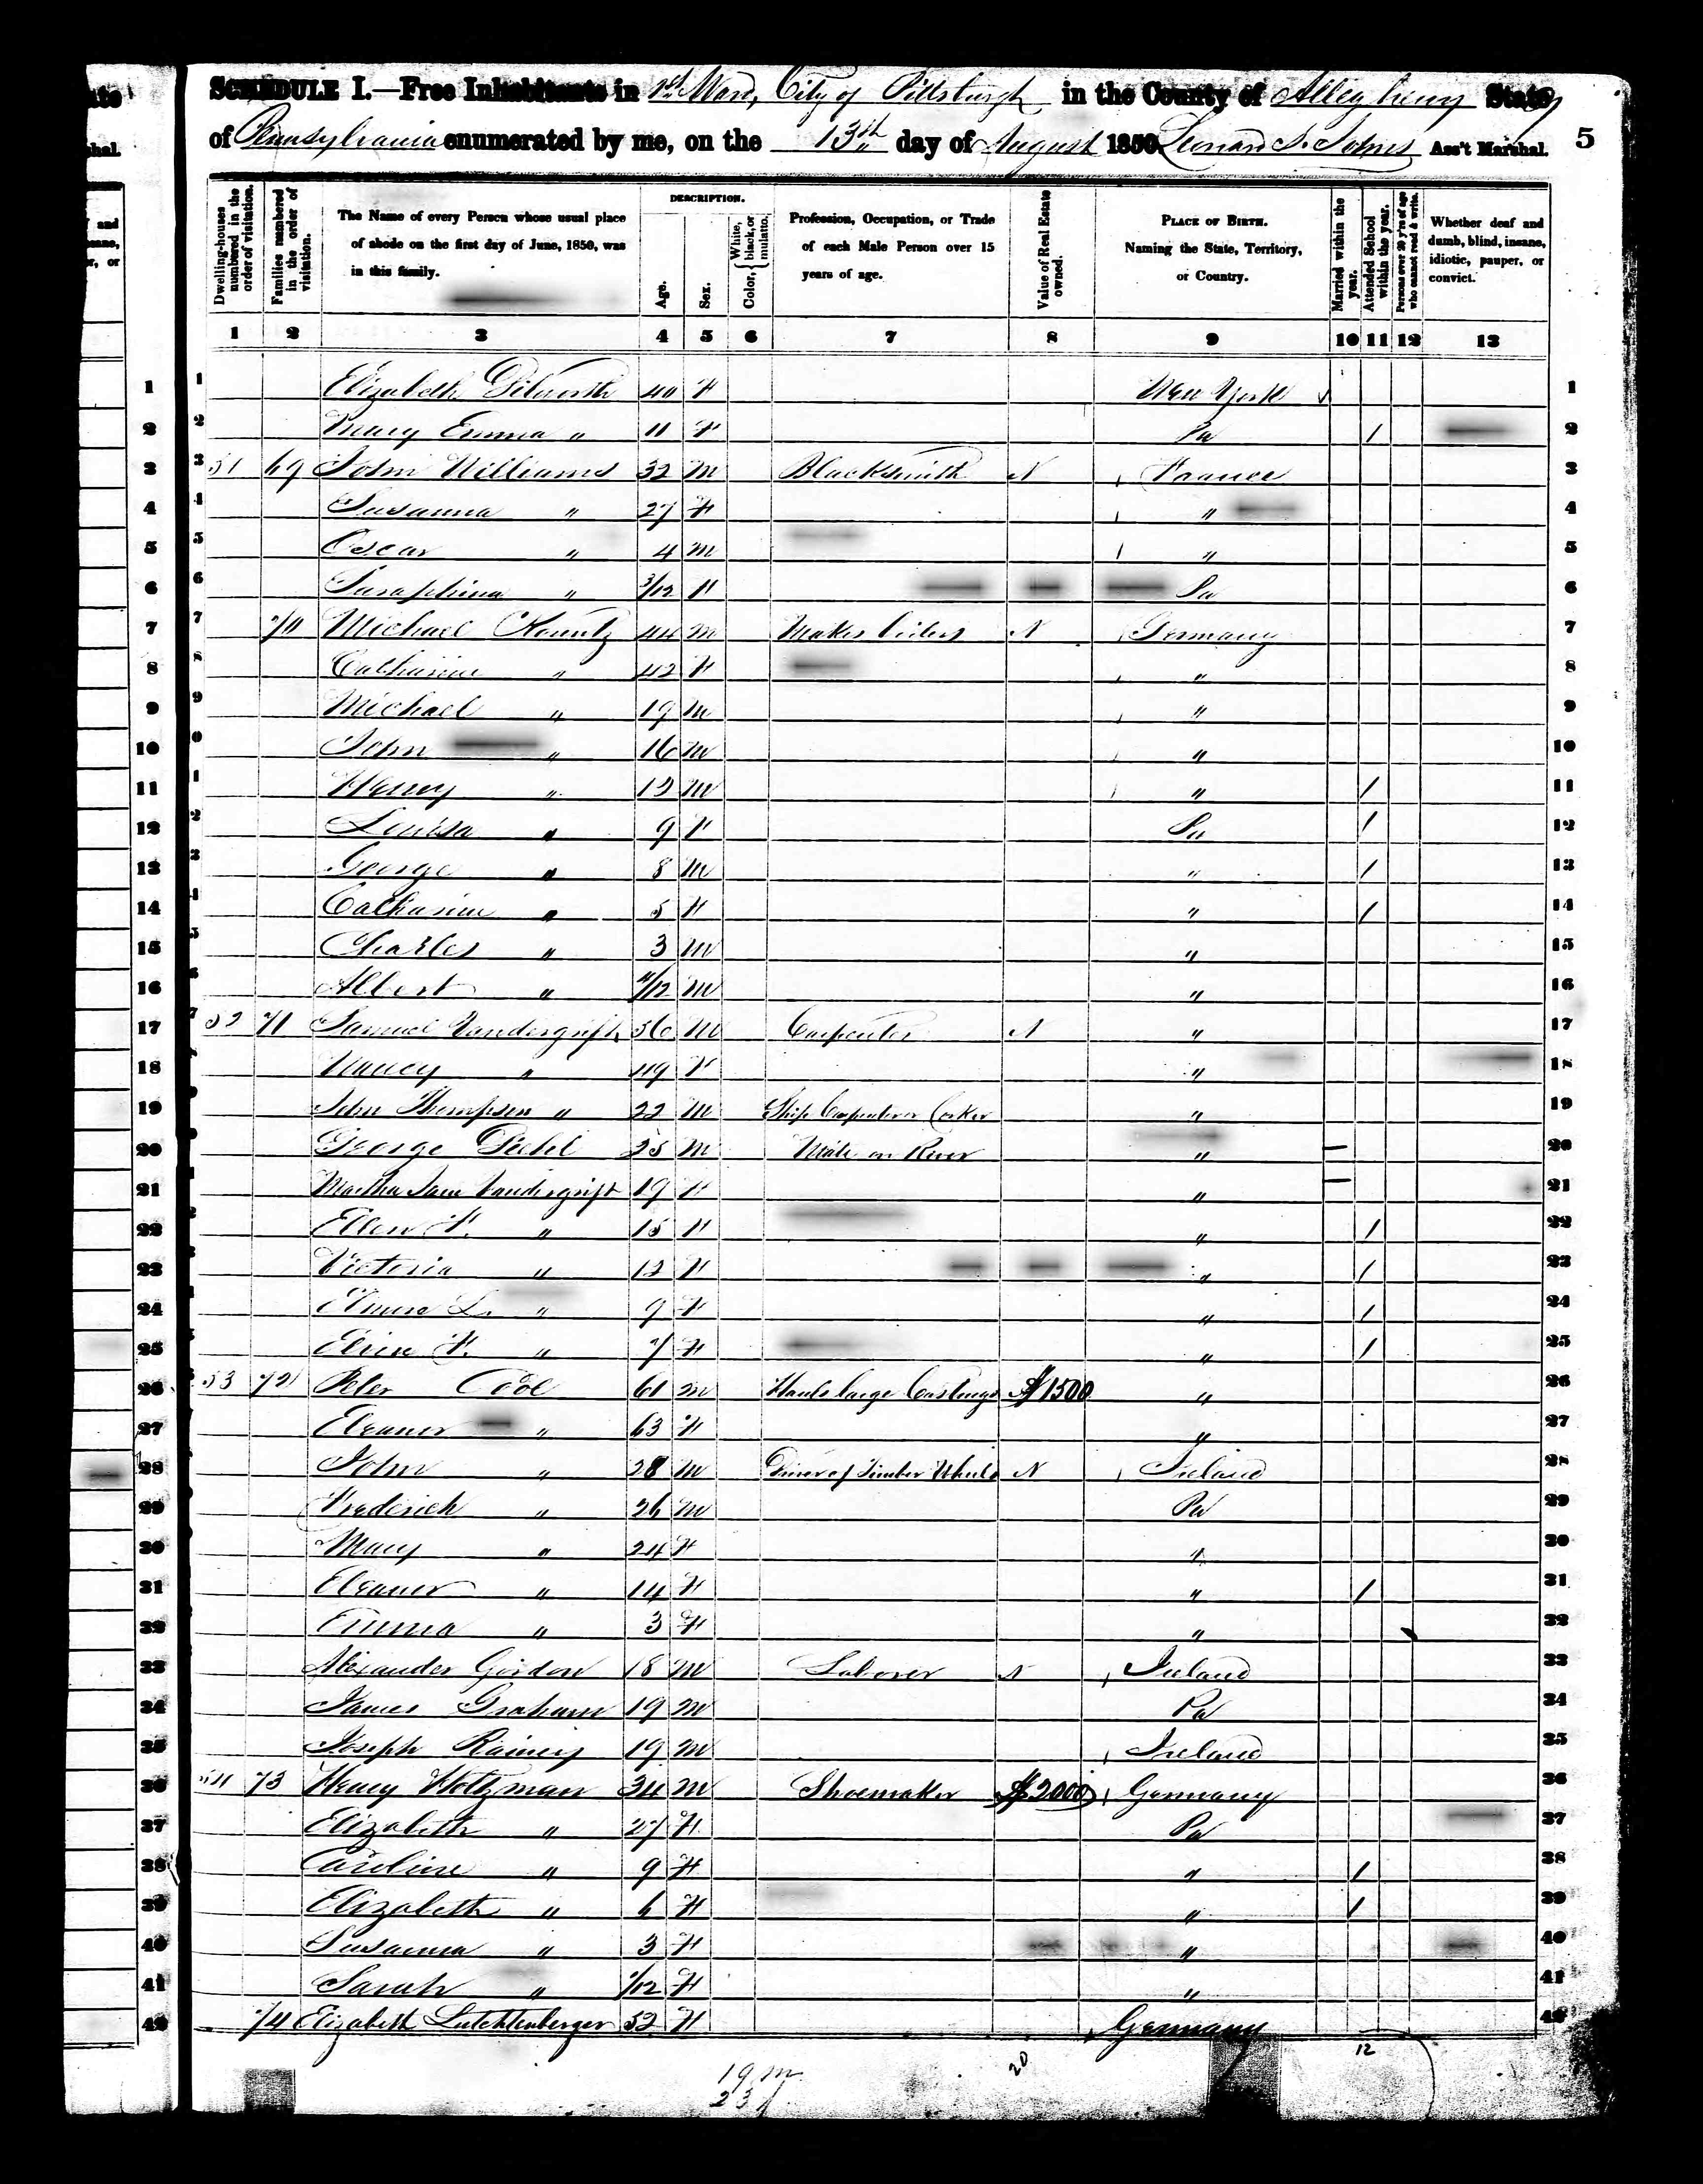 SCHEDULE I.—Free Inhabitants in Ward, City of Pittsburgh in the County of Allegheny State
of Pennsylvania enumerated by me, on the 13th day of August 1850. Ass't Marshal. 5
DESCRIPTION.
Dwelling-houses numbered in the order of visitation.
Families numbered in the order of visitation.
The Name of every Person whose usual place of abode on the first day of June, 1850, was in this family.
Age.
Sex.
Color, White, black, or mulatto.
Profession, Occupation, or Trade of each Male Person over 15 years of age.
Value of Real Estate owned.
PLACE OF BIRTH. Naming the State, Territory, or Country.
Married within the year.
Attended School within the year.
Persons over 20 y'rs of age who cannot read & write.
Whether deaf and dumb, blind, insane, idiotic, pauper, or convict.
1 2 3 4 5 6 7 8 9 10 11 12 13
1 Elizabeth Dilworth 40 F New York 1
2 Mary Emma " 11 F Pa / 2
3 51 69 John Williams 32 M Blacksmith N France 3
4 Susanna " 27 F " 4
5 Oscar " 4 M " 5
6 Saraphina " 3/12 F Pa 6
7 70 Michael 44 M Makes N Germany 7
8 Catharine " 42 F " 8
9 Michael " 19 M " 9
10 John " 16 M " 10
11 Henry " 12 M " / 11
12 Louisa " 9 F Pa / 12
13 George " 8 M " / 13
14 Catharine " 5 F " / 14
15 Charles " 3 M " 15
16 Albert " /12 M " 16
17 52 71 Samuel Vandergrift 56 M Carpenter N " 17
18 Nancy " 49 F " 18
19 John Thompson " 22 M Ship Carpenter or Corker " 19
20 George 25 M Mate on River " — 20
21 Martha Jane Vandergrift 19 F " — 21
22 Ellen F. " 15 F " / 22
23 Victoria " 12 F " / 23
24 L. " 9 F " / 24
25 F. " 7 F " / 25
26 53 72 Peter Cool 61 M Hauls large Castings $1500 " 26
27 Eleanor " 63 F " 27
28 John " 28 M Driver of Timber Wheels N Ireland 28
29 Frederick " 26 M Pa 29
30 Mary " 24 F " 30
31 Eleanor " 14 F " / 31
32 Emma " 3 F " 32
33 Alexander Gordon 18 M Laborer N Ireland 33
34 James Graham 19 M Pa 34
35 Joseph Rainey 19 M Ireland 35
36 54 73 Henry Holtzman 34 M Shoemaker $2000 Germany 36
37 Elizabeth " 27 F Pa 37
38 Caroline " 9 F " / 38
39 Elizabeth " 6 F " / 39
40 Susanna " 3 F " 40
41 Sarah " /12 F " 41
42 74 Elizabeth Lutchtenberger 52 F Germany 42
19 m. 20 12
23 f